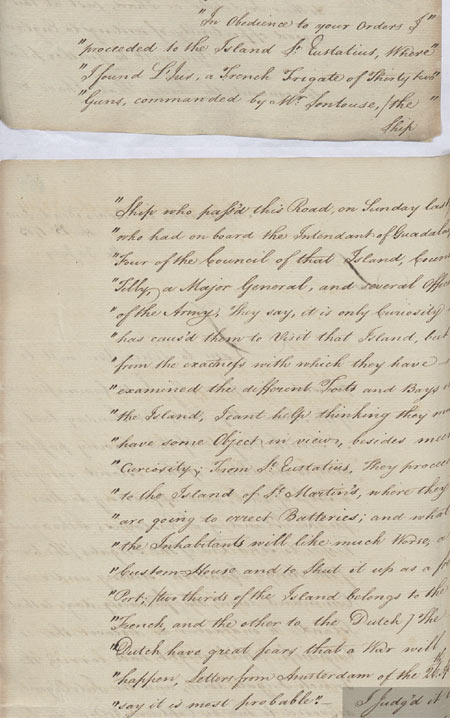 "In Obedience to your Orders I"
"proceeded to the Island St. Eustatius, Where"
"I found L'Iris, a French Frigate of Thirty two"
"Guns, commanded by Mr. , /the "
Ship
"Ship who pass'd this Road, on Sunday last
"who had on board the Intendant of Guadalou
"Four of the Council of that Island, Coun
"Tilly, a Major General, and several Offic
"of the Army; They say, it is only Curiosity
"has caus'd them to Visit that Island, but
"from the exactness with which they have
"examined the different Forts and Bays
"the Island, I cant help thinking they m
"have some Object in view, besides mee
"Curiosity; From St. Eustatius, They procee
"to the Island of St. Martin's, where they
"are going to errect Batteries; and what
"the Inhabitants will like much Worse, a
"Custom-House and to Shut it up as a f
"Port; /two thirds of the Island belongs to the
"French, and the other to the Dutch) The
"Dutch have great fears that a War will
"happen, Letters from Amsterdam of the
"say it is most probable".—
I judg'd it